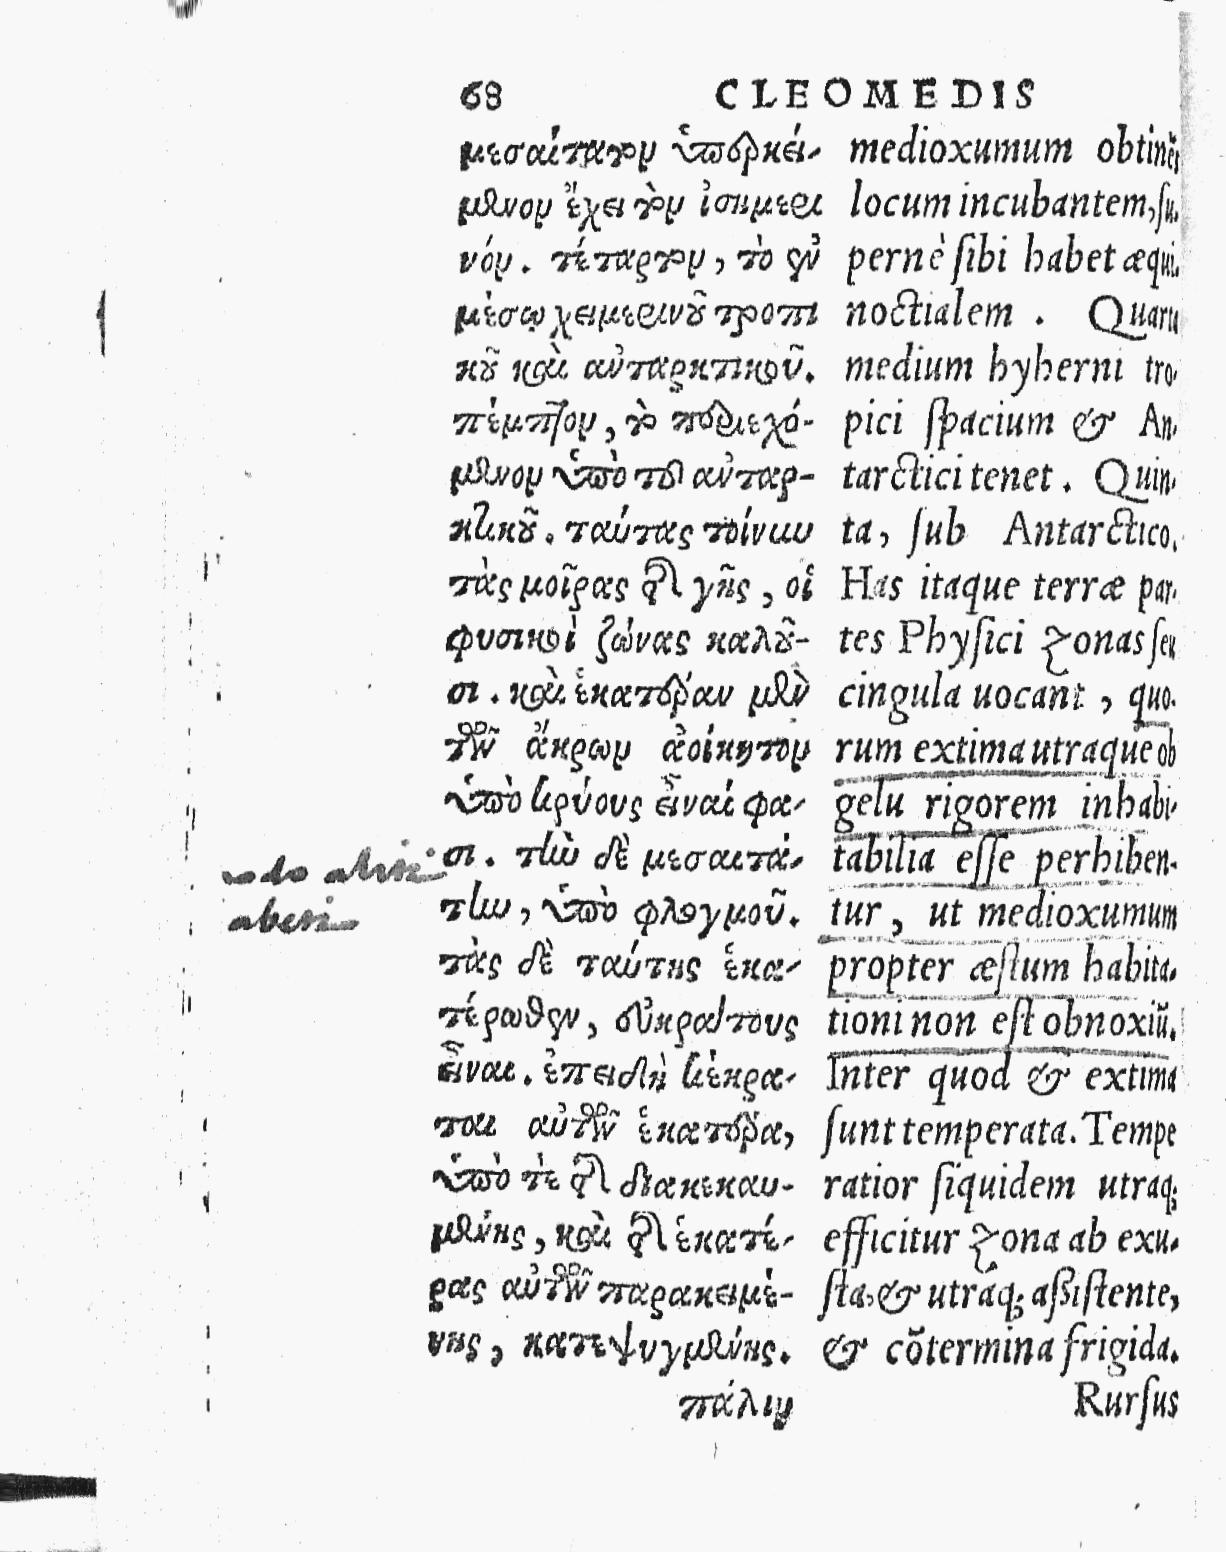 68 CLEOMEDIS
μεσαίτατον ὑποκεί-
μενον ἔχει τὸν ἰσημερι
νόν. τέταρτον, τὸ ἐν
μέσῳ χειμερινοῦ τροπι
κοῦ καὶ ἀνταρκτικοῦ.
πέμπτον, τὸ περιεχό-
μενον ὑπὸ τοῦ ἀνταρ-
κτικοῦ. ταύτας τοίνυν
τὰς μοῖρας τῆς γῆς, οἱ
φυσικοὶ ζώνας καλοῦ-
σι. καὶ ἑκατέραν μὲν
τῶν ἄκρων ἀοίκητον
ὑπὸ κρύους εἶναί φα-
σι. τὴν δὲ μεσαιτά-
την, ὑπὸ φλογμοῦ.
τὰς δὲ ταύτης ἑκα-
τέρωθεν, εὐκράτους
εἶναι. ἐπειδὴ κέκρα-
ται αὐτῶν ἑκατέρα,
ὑπὸ τὲ τῆς διακεκαυ-
μένης, καὶ τῆς ἑκατέ-
ρας αὐτῶν παρακειμέ-
νης, κατεψυγμένης.
πάλιν
medioxumum obtinẽt
locum incubantem, ſu-
pernè ſibi habet æqui-
noctialem. Quarta
medium hyberni tro-
pici ſpacium & An-
tarctici tenet. Quin-
ta, ſub Antarctico.
Has itaque terræ par-
tes Phyſici zonas ſeu
cingula uocant, quo-
rum extima utraque ob
gelu rigorem inhabi-
tabilia eſſe perhiben-
tur, ut medioxumum
propter æſtum habita-
tioni non eſt obnoxiũ.
Inter quod & extima
ſunt temperata. Tempe
ratior ſiquidem utraq;
efficitur zona ab exu-
ſta, & utraq; aßiſtente,
& cõtermina frigida.
Rurſus